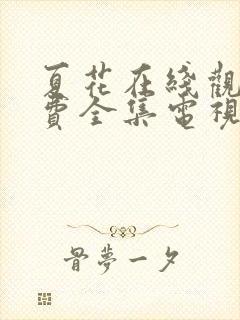 夏花在綫觀
費全集電視
骨夢一夕